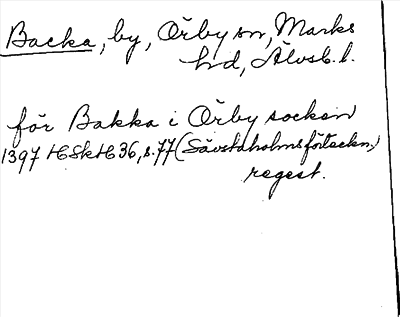 Backa, by, Örby sn, Marks
hd, Älvsb. l.
för Bakka i Örby socken
1397 HSkH 36, s. 77 (Sävstaholmsförteckn.)
regest.